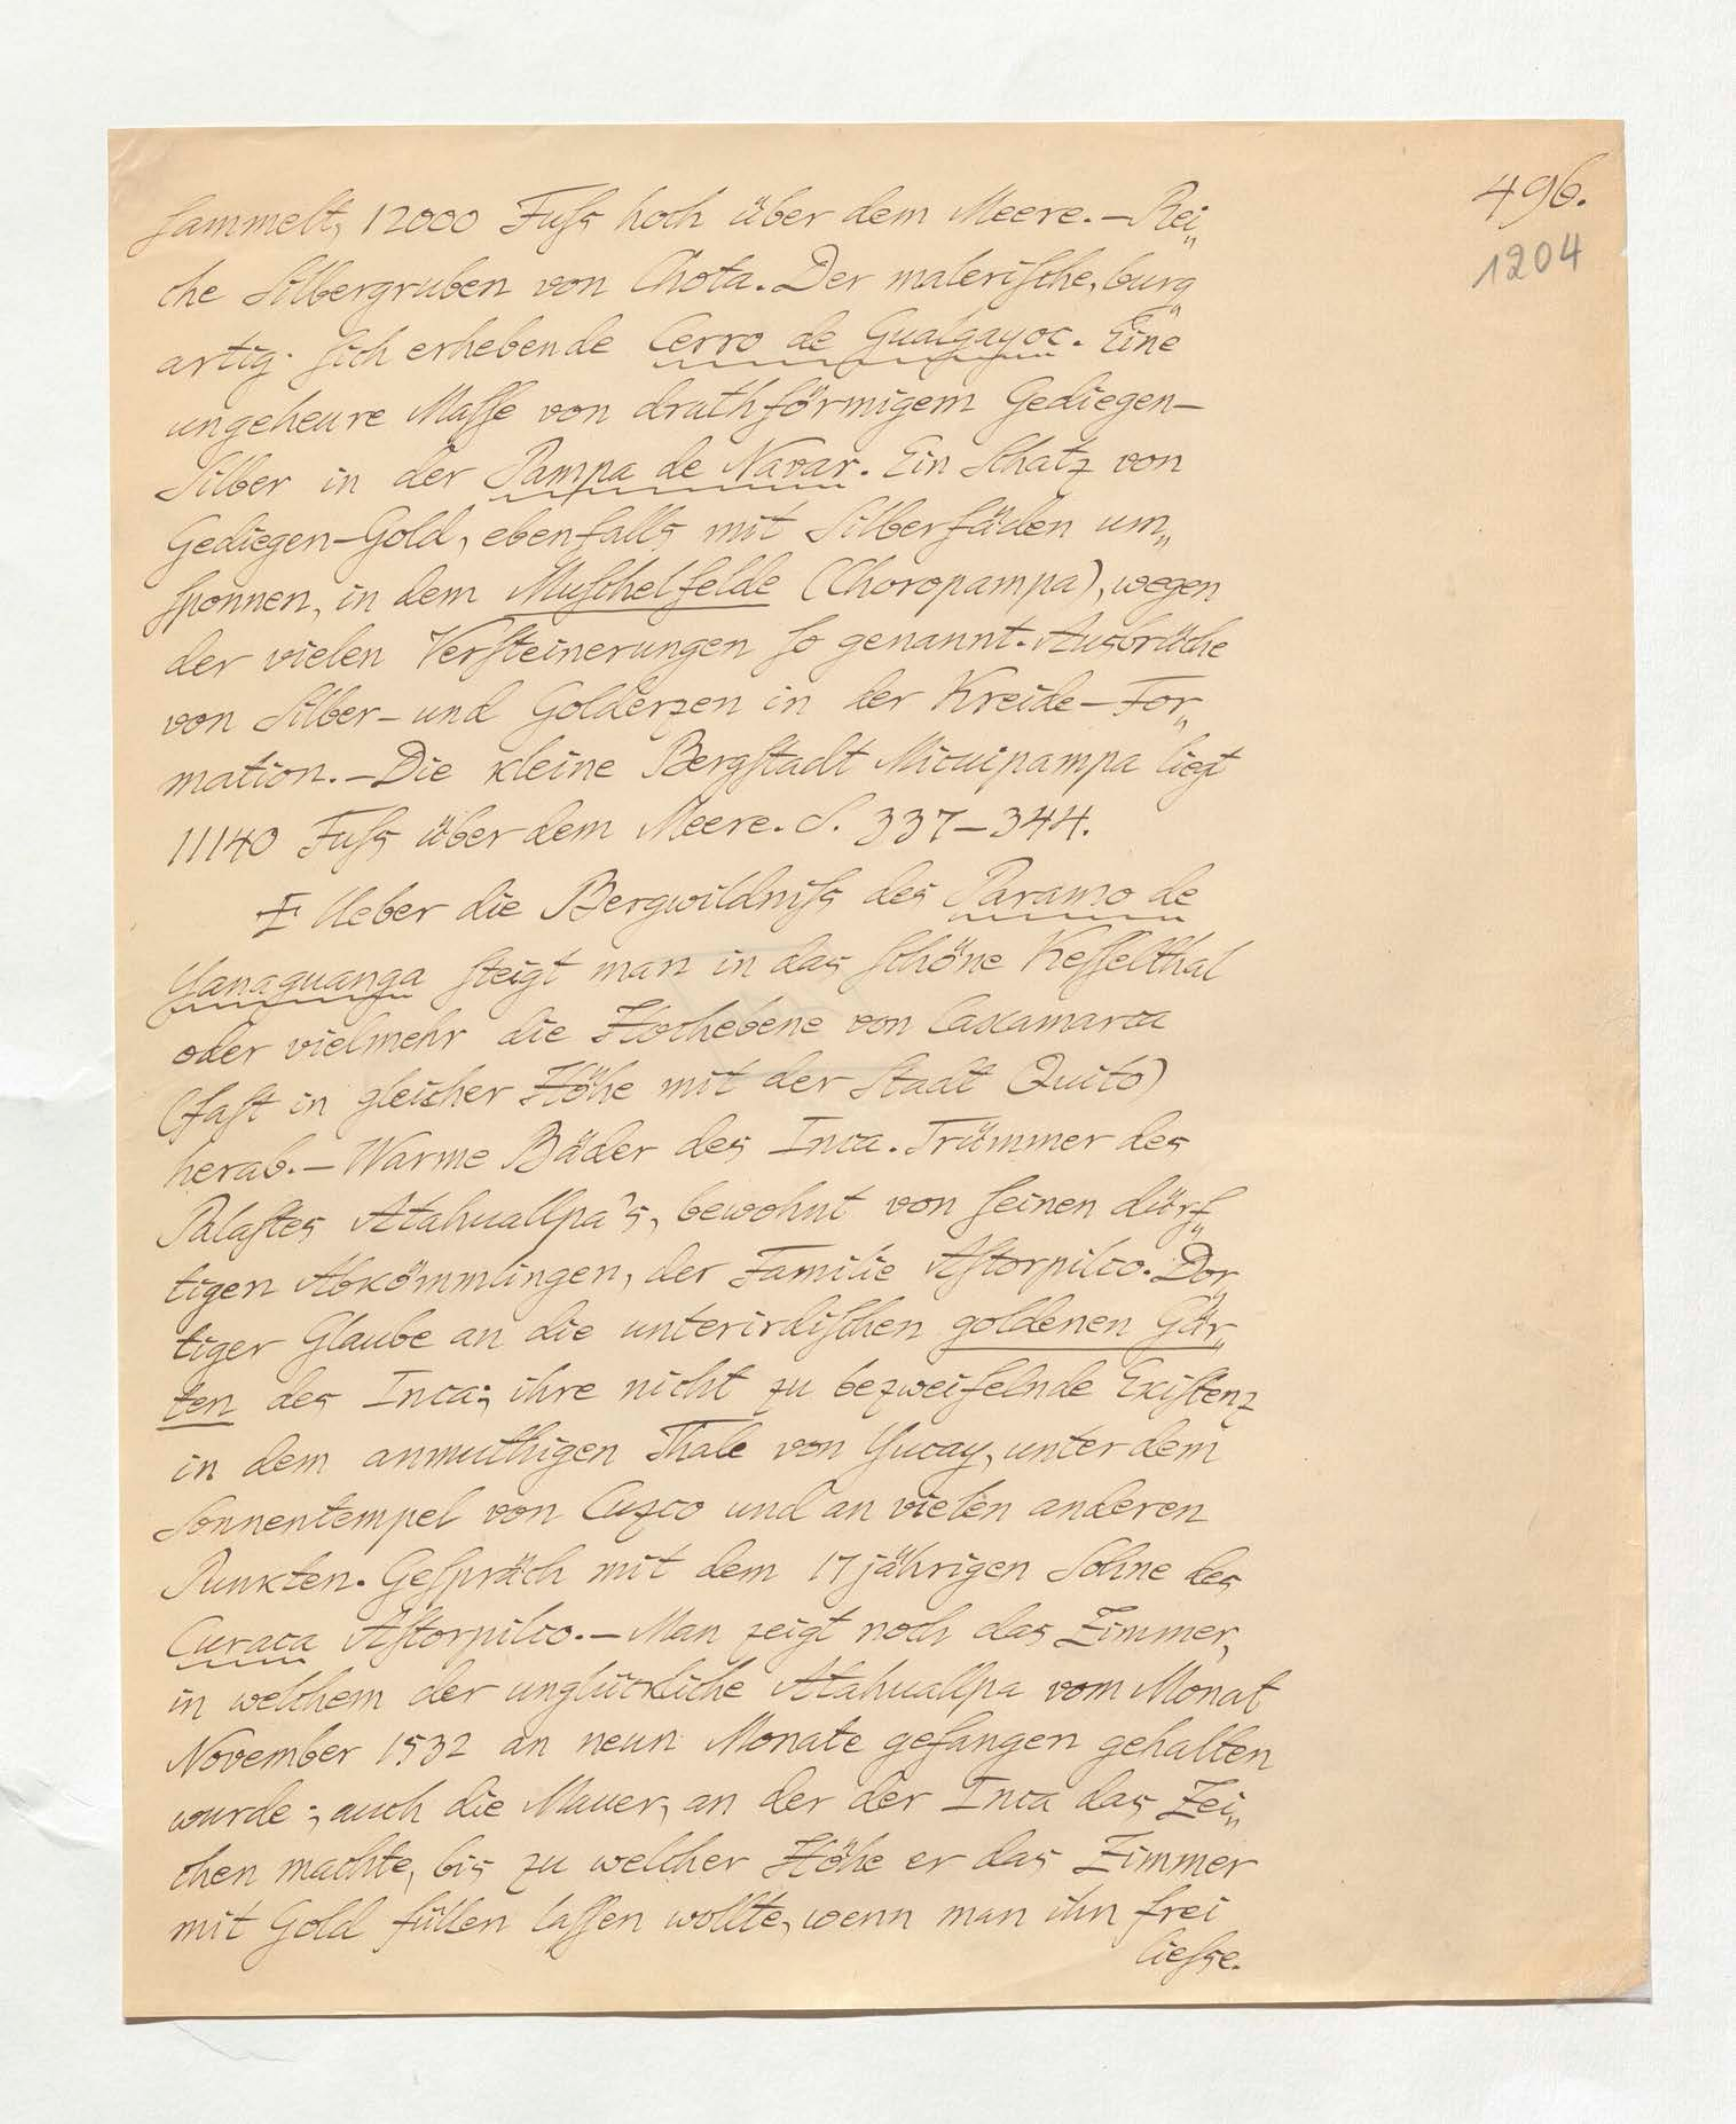 496.
1204
sammelt, 12000 Fuſs hoch über dem Meere. — Rei„
che Silbergruben von Chota. Der maleriſche, burg„
artig ſich erhebende Cerro de Gualgayoc. Eine
ungeheure Maſſe von drathförmigem Gediegen-
Silber in der Pampa de Navar. Ein Schatz von
Gediegen-Gold, ebenfalls mit Silberfäden um„
ſponnen, in dem Muſchelfelde (Choropampa), wegen
der vielen Verſteinerungen ſo genannt. Ausbrüche
von Silber- und Golderzen in der Kreide-For„
mation. — Die kleine Bergſtadt Micuipampa liegt
11140 Fuſs über dem Meere. S. 337–344.
Ueber die Bergwildniſs des Paramo de
Yanaguanga ſteigt man in das ſchöne Keſſelthal
oder vielmehr die Hochebene von Caxamarca
(faſt in gleicher Höhe mit der Stadt Quito)
herab. — Warme Bäder des Inca. Trümmer des
Palaſtes Atahuallpa's, bewohnt von ſeinen dürf„
tigen Abkömmlingen, der Familie Aſtorpilco. Dor„
tiger Glaube an die unterirdiſchen goldenen Gär„
ten des Inca; ihre nicht zu bezweifelnde Exiſtenz
in dem anmuthigen Thale von Yucay, unter dem
Sonnentempel von Cuzco und an vielen anderen
Punkten. Geſpräch mit dem 17jährigen Sohne des
Curaca Aſtorpilco. — Man zeigt noch das Zimmer,
in welchem der unglückliche Atahuallpa vom Monat
November 1532 an neun Monate gefangen gehalten
wurde; auch die Mauer, an der der Inca das Zei„
chen machte, bis zu welcher Höhe er das Zimmer
mit Gold füllen laſſen wollte, wenn man ihn frei
lieſse.